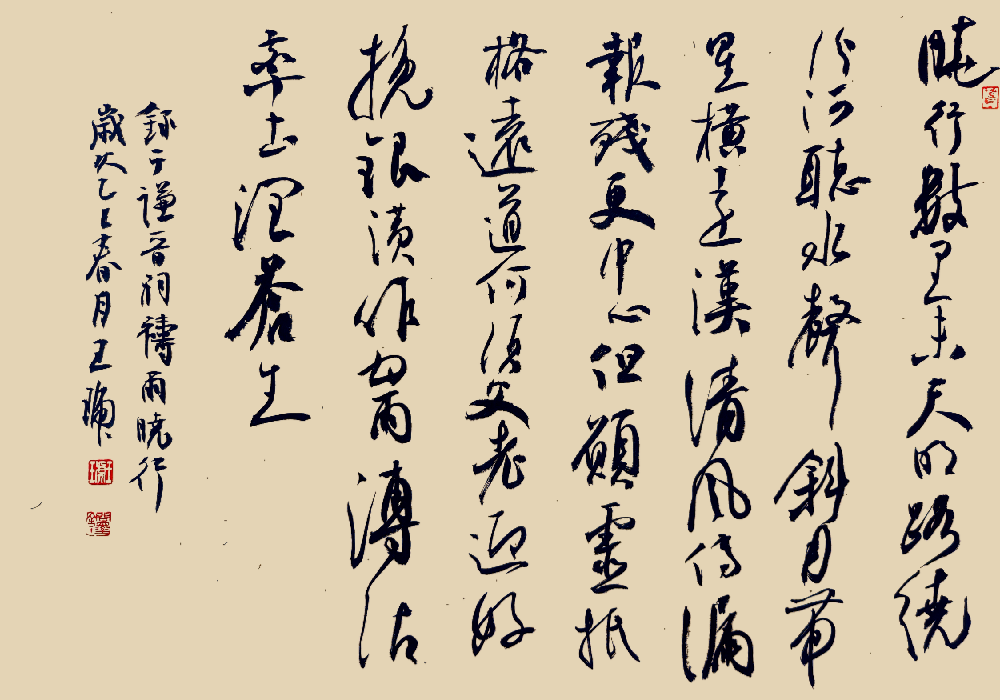 曉行數里未天明路繞
汾河聽水聲斜月帶
星橫遠漢清風傳漏
報殘更中心但願靈祇
格遠道何須父老迎好
挽銀潢作甘雨溥沾
率土潤蒼生
錄于謙晉祠禱雨曉行
歲次乙巳春月王